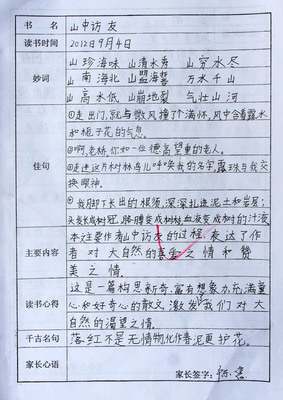 书名 山中访友
读书时间 2012年9月4日
妙词 山珍海味 山清水秀 山穷水尽
山南海北 山盟海誓 万水千山
山高水低 山崩地裂 气壮山河
佳句 ①走出门,就与微风撞了个满怀,风中含着露水
和栀子花的气息。
②啊,老桥,你如一位德高望重的老人。
③走进这片树林鸟儿呼唤我的名字,露珠与我交
换眼神。
④我脚下长出的根须,深深扎进泥土和岩层;
头发长成树冠,胳膊变成树枝,血液变成树的汁液
主要内容 本文主要作者山中访友的过程,表达了作
者对大自然的喜爱之情和赞
美之情.
读书心得 这是一篇构思新奇,富有想象力,充满童
心和好奇心的散文,激发了我们对大
自然的渴望之情.
千古名句 落红不是无情物,化作春泥更护花.
家长心语
家长签字: